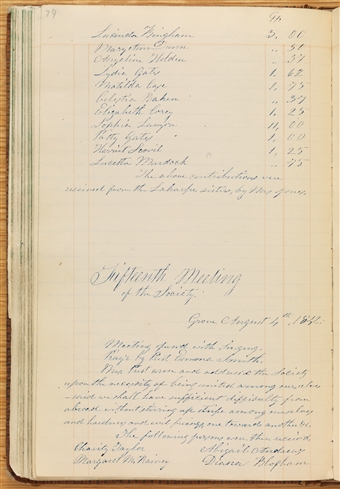 79
$
Lucinda Bingham 3, 00
Mary 50
Angeline Holden " 37
Lydia Gates 1, 62
Matilda 1, 75
Celestia " 37
Elizabeth Corey 1, 25
Sophia 11, 00
Patty Gates 1, 00
Harriet Scovil 1, 25
Lucetta Murdock " 75
The above contributions were
received from the Laharpe sisters, by Mrs Jones.
Fifteenth Meeting
of the Society
Grove August 4th 1842.
Meeting opened with Singing.
Pray'r by Prest Emma Smith.
Mrs Prest arose and addressed the Society
upon the necessity of being united among ourselves
said we shall have sufficient difficulty from
abroad without stirring up strife among ourselves
and hardness and evil feelings, one towards another &c.
The following persons were then received
Charity Taylor Abigail Andrews
Margaret McNairy Eleanor